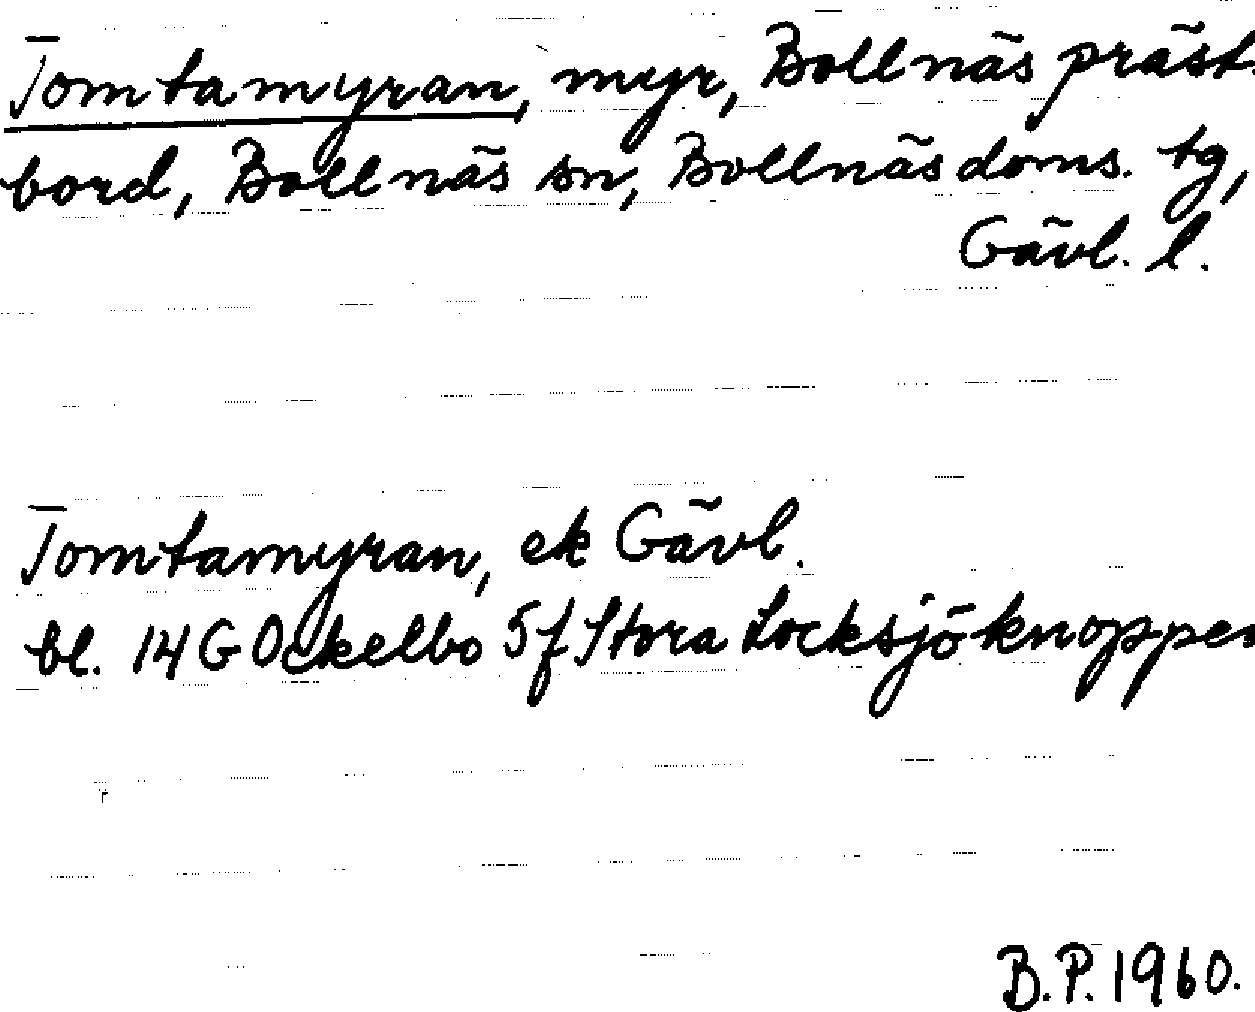 Tomtamyran, myr, Bollnäs präst-
bord, Bollnäs sn, Bollnäs doms. tg,
Gävl. l.
Tomtamyran, ek Gävl.
bl. 14 G Ockelbo 5f Stora Locksjöknoppen
B.P. 1960.